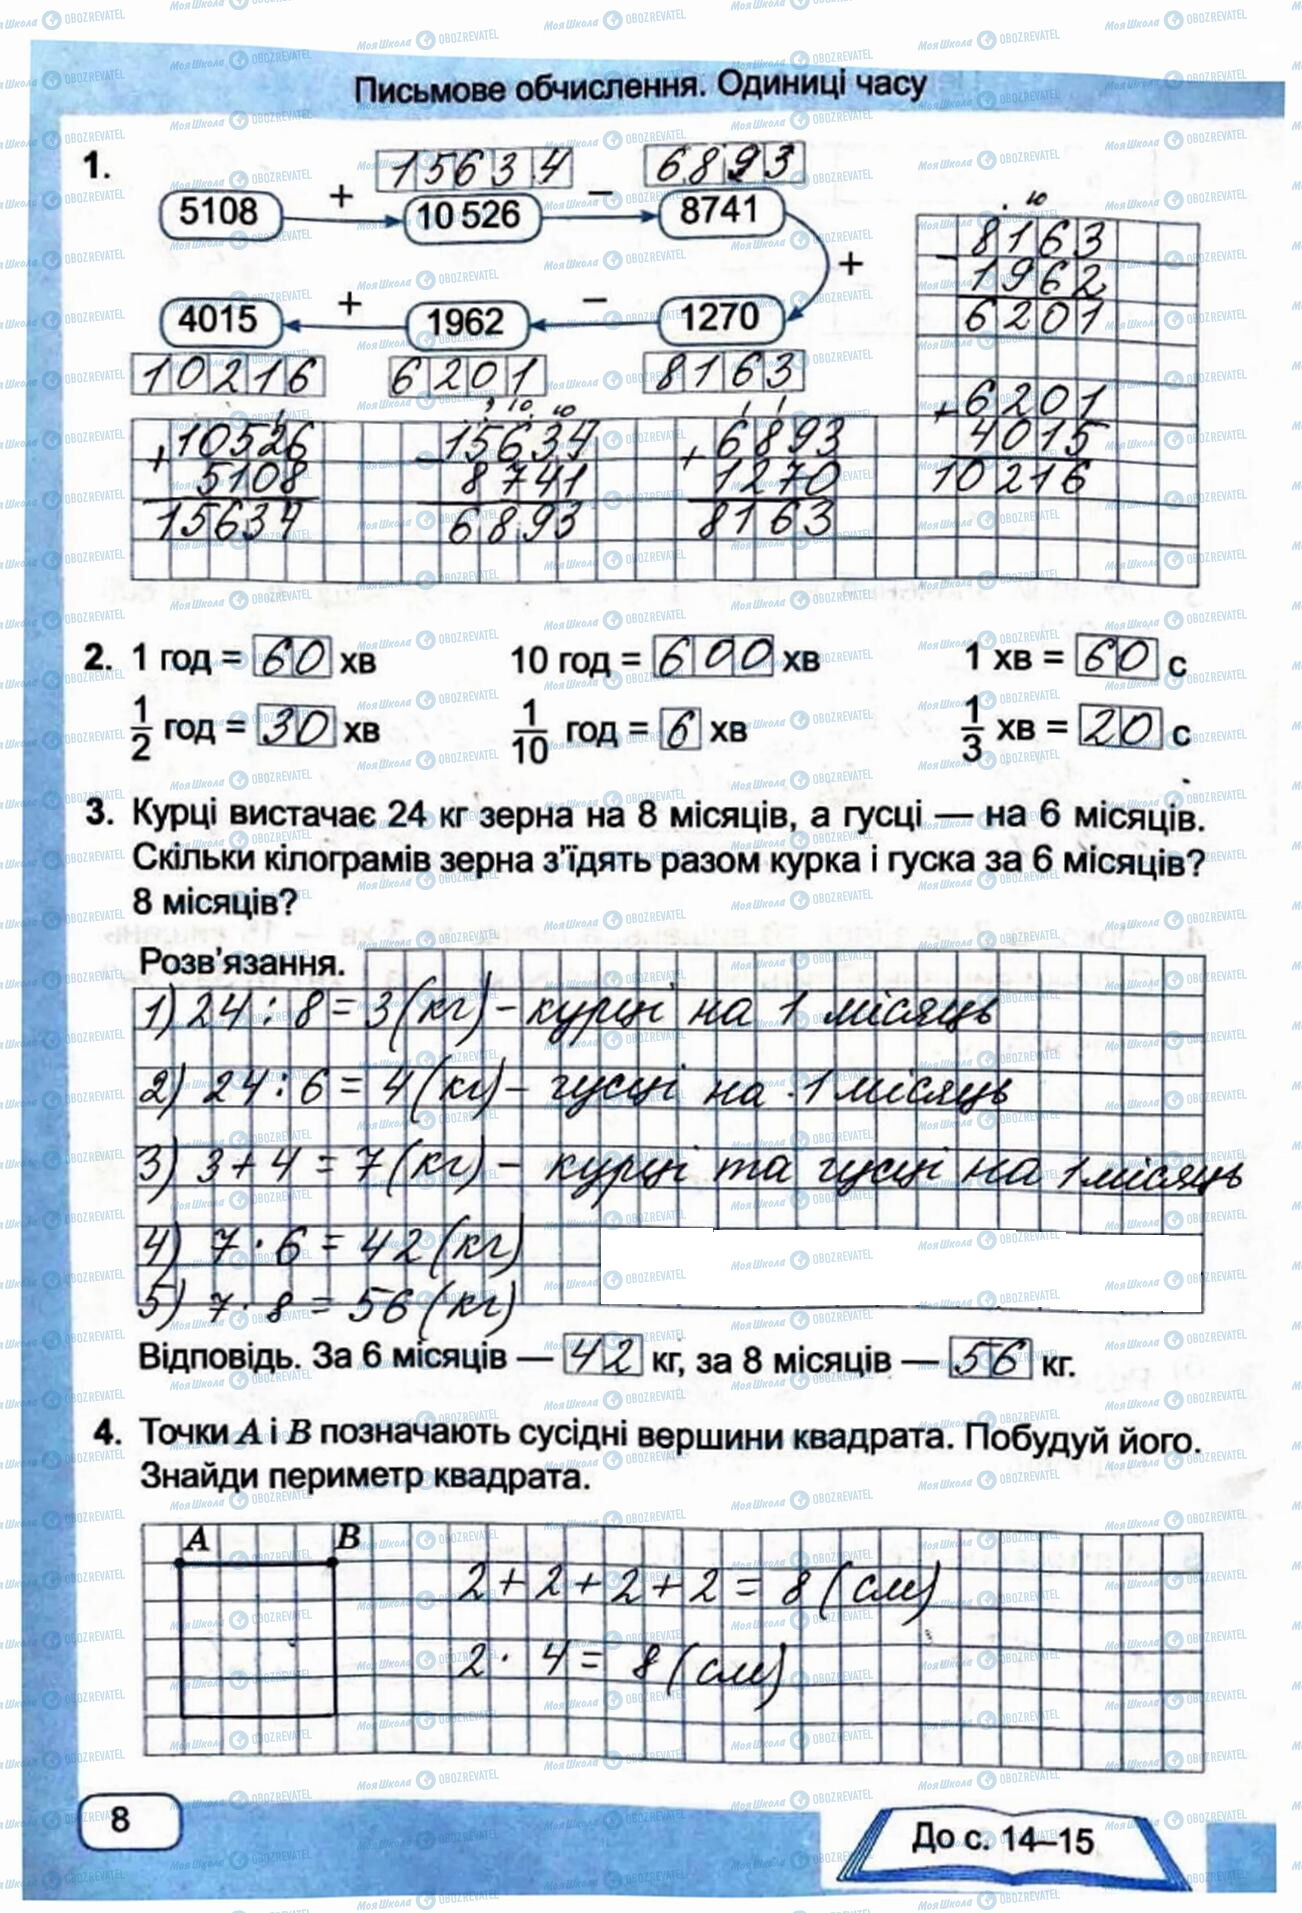 Письмове обчислення. Одиниці часу
1.
15634 6893
5108 + 10 526 – 8741
+
4015 + 1962 – 1270
10216 6201 8163
. 10
– 8163
1962
6201
+ 6201
4015
10216
1
+ 10526
5108
15634
10 10
– 15634
8741
6893
1 1
+ 6893
1270
8163
2. 1 год = 60 хв 10 год = 600 хв 1 хв = 60 с
1/2 год = 30 хв 1/10 год = 6 хв 1/3 хв = 20 с
3. Курці вистачає 24 кг зерна на 8 місяців, а гусці — на 6 місяців.
Скільки кілограмів зерна з’їдять разом курка і гуска за 6 місяців?
8 місяців?
Розв’язання.
1) 24 : 8 = 3 (кг) – курці на 1 місяць
2) 24 : 6 = 4 (кг) – гусці на 1 місяць
3) 3 + 4 = 7 (кг) – курці та гусці на 1 місяць
4) 7 · 6 = 42 (кг)
5) 7 · 8 = 56 (кг)
Відповідь. За 6 місяців — 42 кг, за 8 місяців — 56 кг.
4. Точки A і B позначають сусідні вершини квадрата. Побудуй його.
Знайди периметр квадрата.
A B
2 + 2 + 2 + 2 = 8 (см)
2 · 4 = 8 (см)
8
До с. 14–15
МояШкола OBOZREVATEL